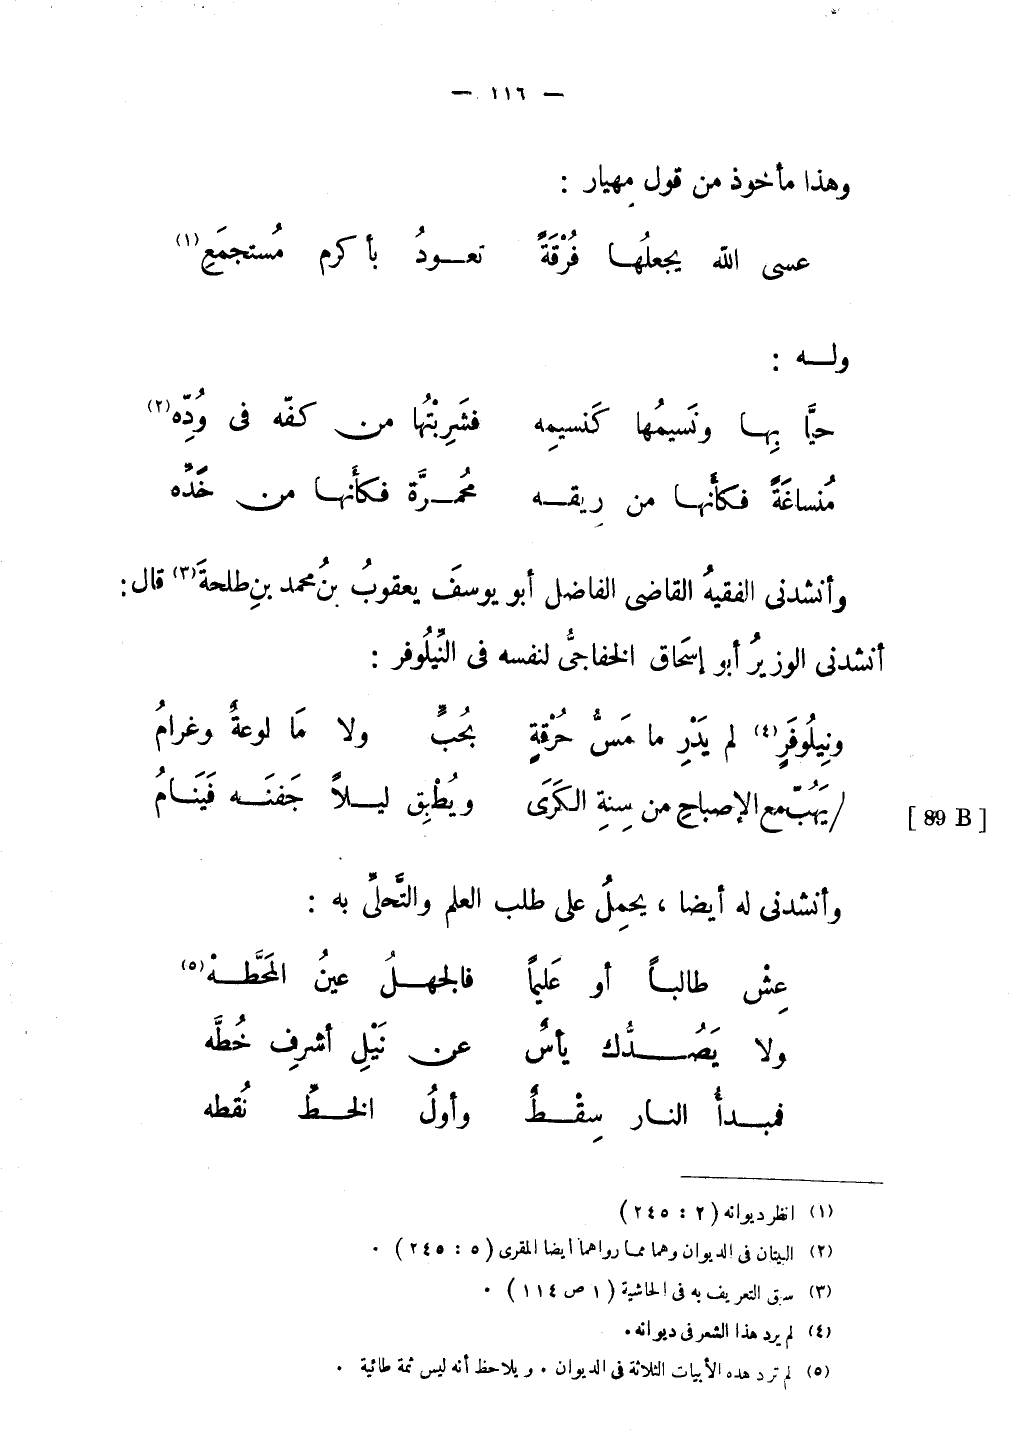 — ١١٦ —
وهذا مأخوذ من قول مِهيار :
عسى الله يجعلُها فُرْقَةً تعودُ بأكرم مُستجمَعِ(١)
وله :
حيًّا بِها ونَسيمُها كَنسيمِه فشَرِبْتُها من كفّه فى وُدِّه(٢)
مُنساغَةً فكأنّها من رِيقه مُحمرَّة فكأنّها من خَدّه
وأنشدنى الفقيهُ القاضى الفاضل أبو يوسفَ يعقوبُ بنُ محمد بنِ طلحةَ(٣) قال :
أنشدنى الوزيرُ أبو إسحَاق الخفاجىُّ لنفسه فى النِّيلُوفر :
ونِيلُوفَرٍ(٤) لم يَدْرِ ما مَسُّ حُرْقةٍ بحُبٍّ ولا مَا لوعةٌ وغرامُ
/ يَهُبّ مع الإصباحِ من سِنةِ الكَرَى ويُطْبِق ليلاً جَفنَه فَيَنَامُ
[ 89 B ]
وأنشدنى له أيضا ، يحمِلُ على طلب العلم والتَّحلِّى به :
عِشْ طالباً أو عَليماً فالجهلُ عينُ المَحَطَّهْ(٥)
ولا يَصُدُّك يأسٌ عن نَيْلِ أشرفِ خُطَّه
فمبدأُ النار سِقْطٌ وأولُ الخطِّ نُقطه
(١) انظر ديوانه ( ٢ : ٢٤٥ )
(٢) البيتان فى الديوان وهما مما رواهما أيضا المقرى ( ٥ : ٢٤٥ ) .
(٣) سبق التعريف به فى الحاشية ( ١ ص ١١٤ ) .
(٤) لم يرد هذا الشعر فى ديوانه .
(٥) لم ترد هده الأبيات الثلاثة فى الديوان . ويلاحظ أنه ليس ثمة طائية .